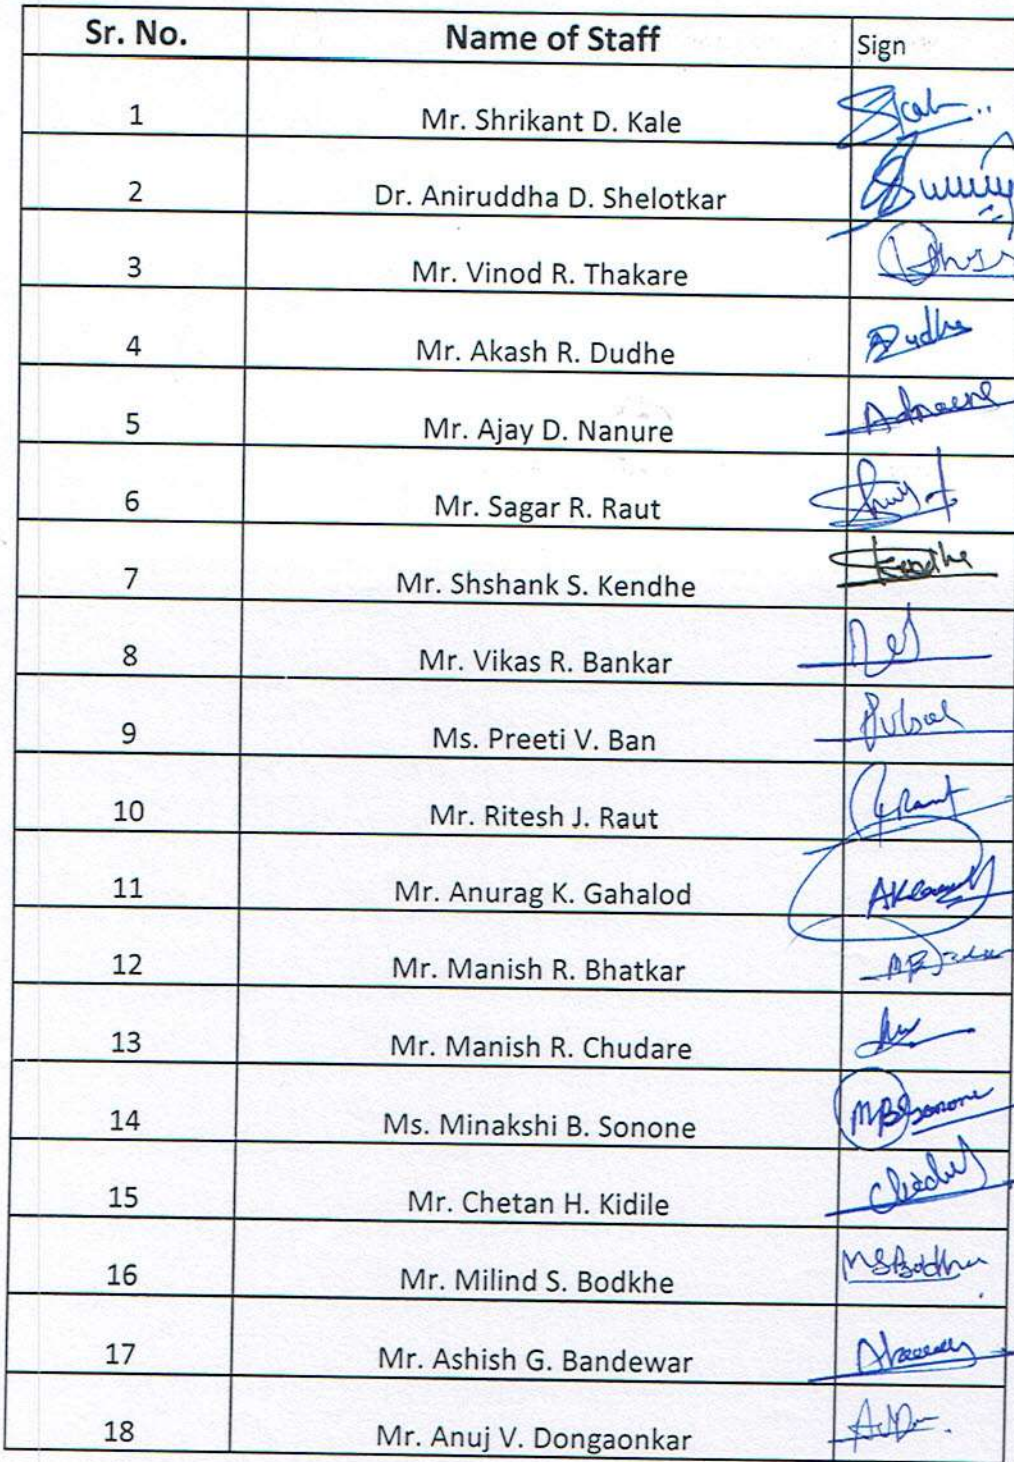 Sr. No. Name of Staff Sign
1 Mr. Shrikant D. Kale
2 Dr. Aniruddha D. Shelotkar
3 Mr. Vinod R. Thakare
4 Mr. Akash R. Dudhe
5 Mr. Ajay D. Nanure
6 Mr. Sagar R. Raut
7 Mr. Shshank S. Kendhe
8 Mr. Vikas R. Bankar
9 Ms. Preeti V. Ban
10 Mr. Ritesh J. Raut
11 Mr. Anurag K. Gahalod
12 Mr. Manish R. Bhatkar
13 Mr. Manish R. Chudare
14 Ms. Minakshi B. Sonone MBSonone
15 Mr. Chetan H. Kidile
16 Mr. Milind S. Bodkhe MSBodkhe
17 Mr. Ashish G. Bandewar
18 Mr. Anuj V. Dongaonkar